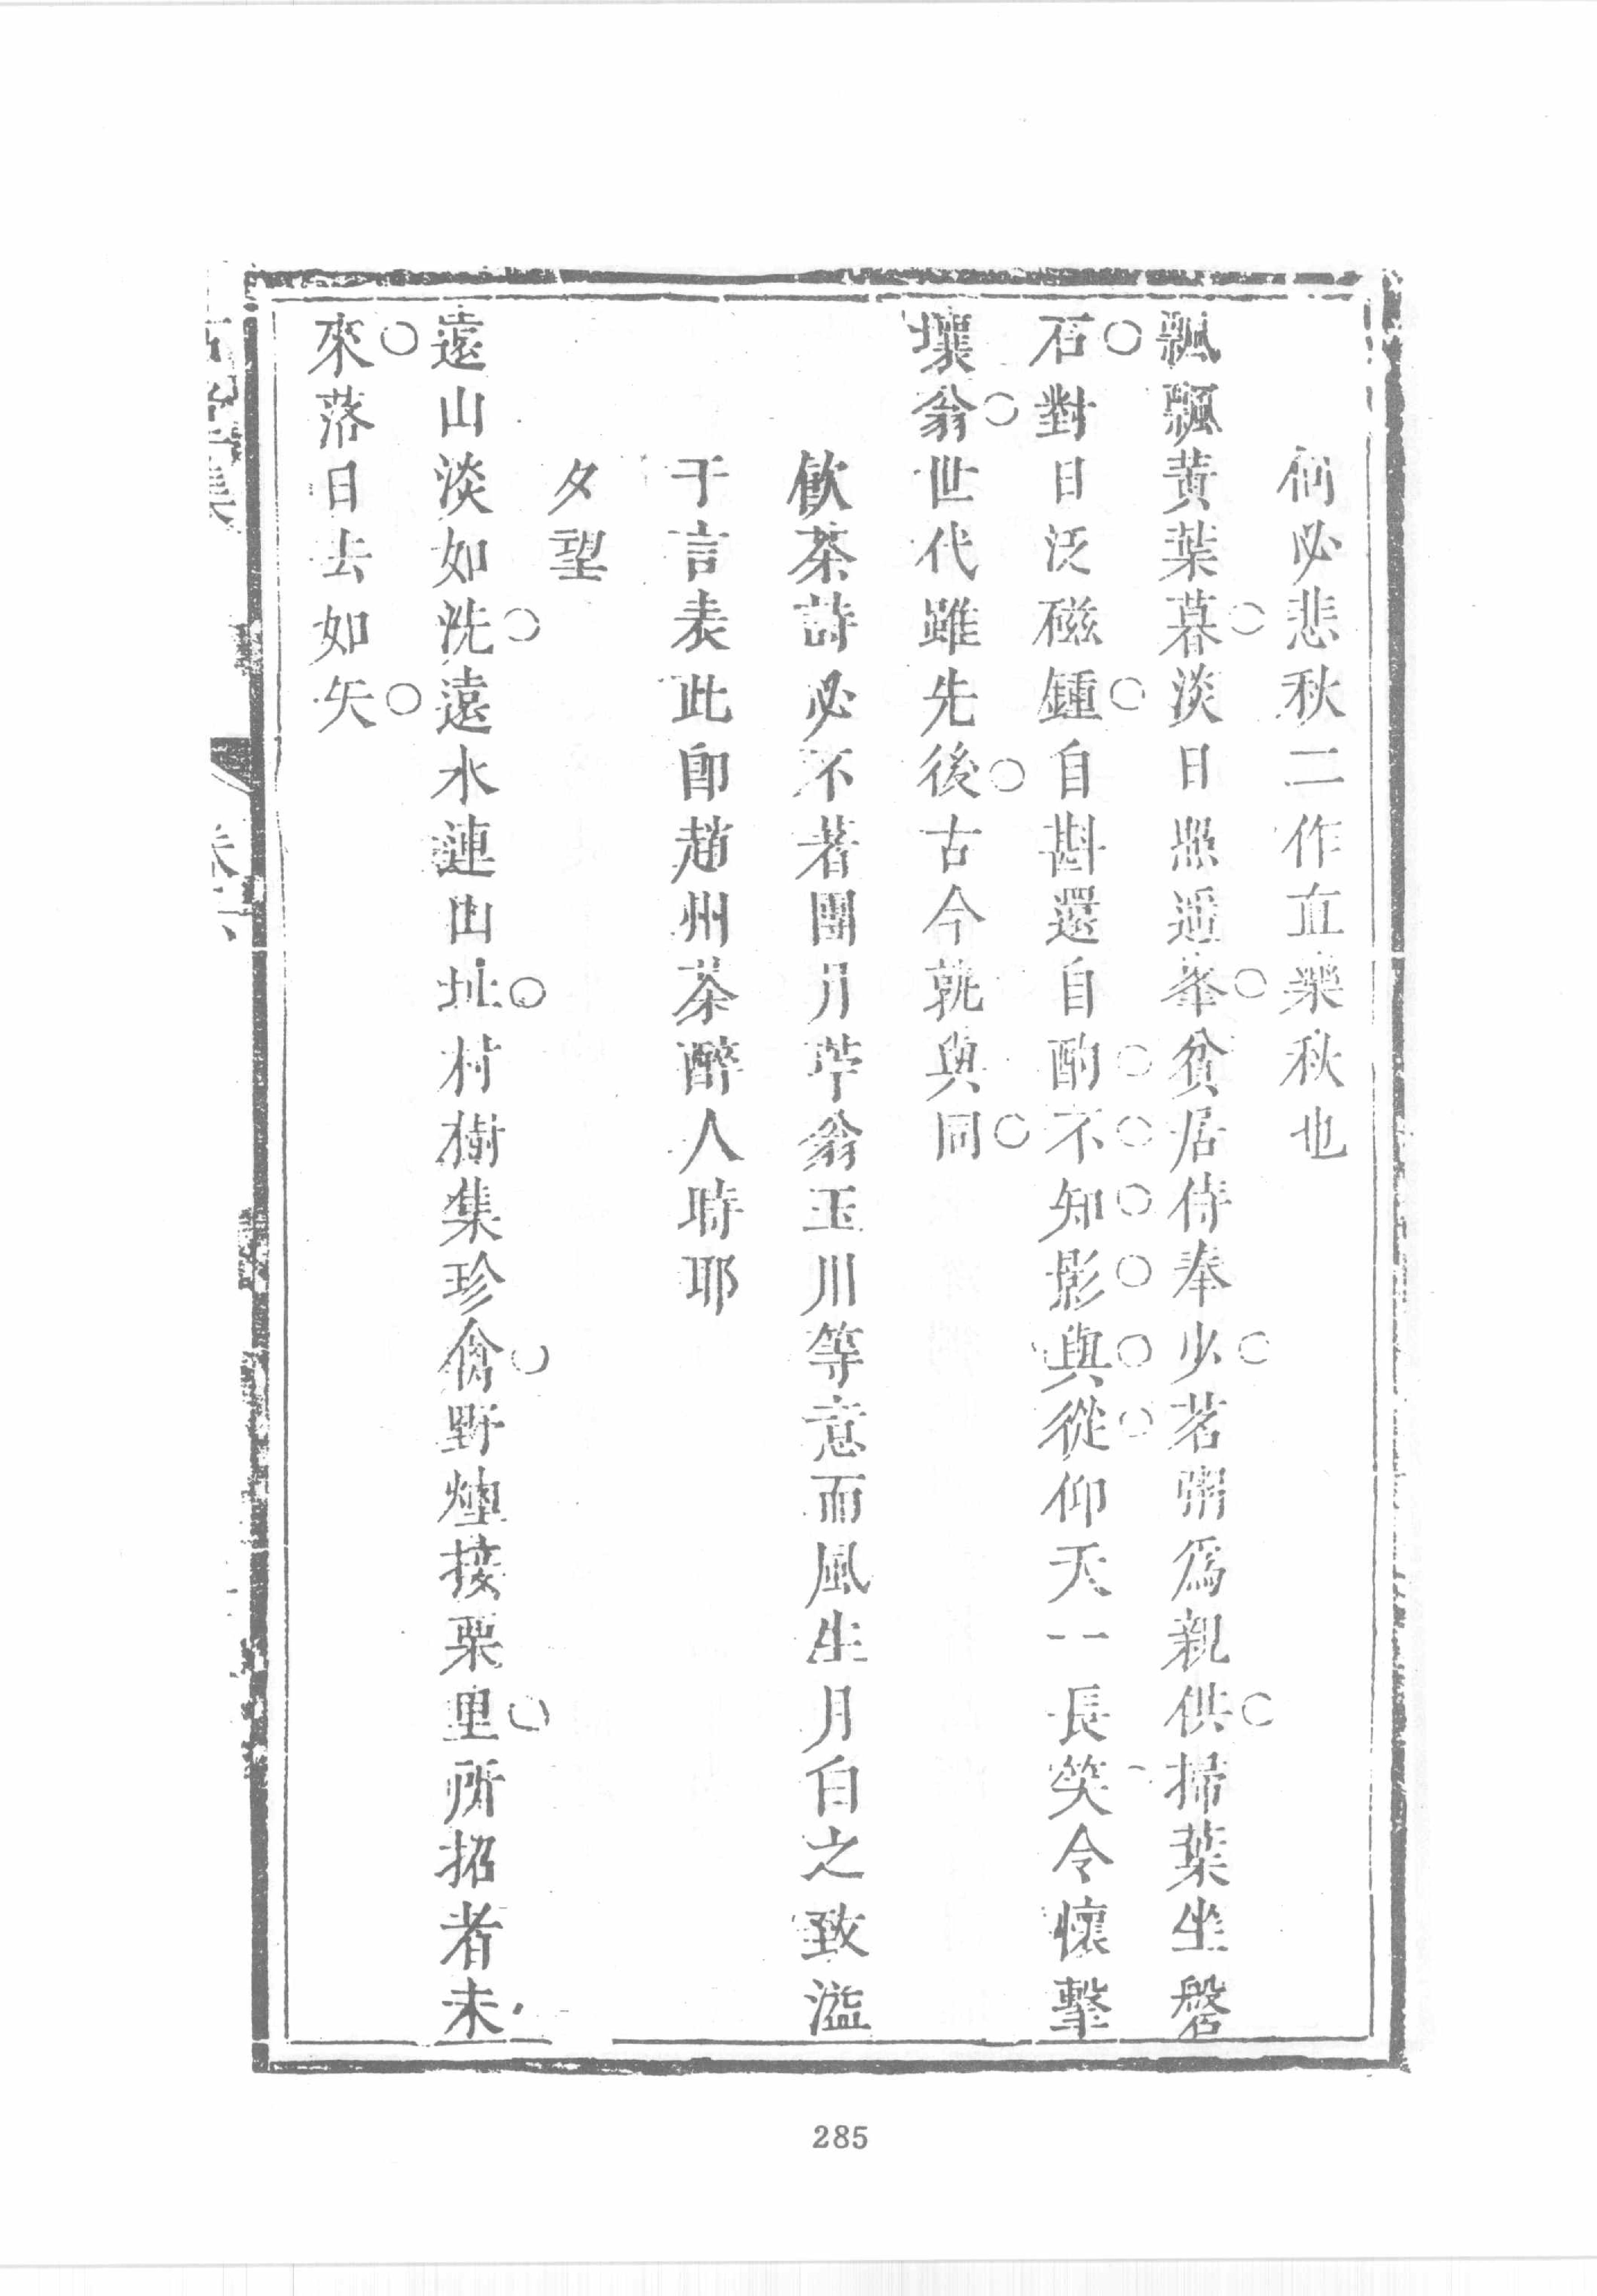 何必悲秋二作直樂秋也
飄飄黃葉暮淡日照遥峯貧居侍奉少茗粥爲親供掃葉坐磐
石對日泛磁鍾自斟還自酌不知影與從仰天一長笑令懷擊
壤翁世代雖先後古今孰與同
飲茶詩必不著團月苧翁玉川等意而風生月白之致溢
于言表此卽趙州茶醉人時耶
夕望
遠山淡如洗遠水連山址村樹集珍禽野煙接栗里所招者未
來落日去如矢
集
卷六
285